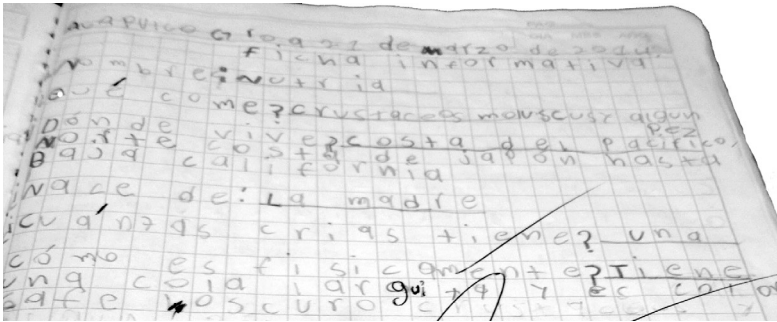 Acapulco Gro a 21 de marzo de
ficha informativa
Nombre: Nutria
Qué come? crustaceos moluscus y algun
pez
Dónde vive? costa del pacifico,
Norte costa de Japón hasta
Baja california
Nace de: La madre
¿Cuántas crias tiene? una
cómo es fisicamente? Tiene
una cola lar gui ta y
cafe oscuro